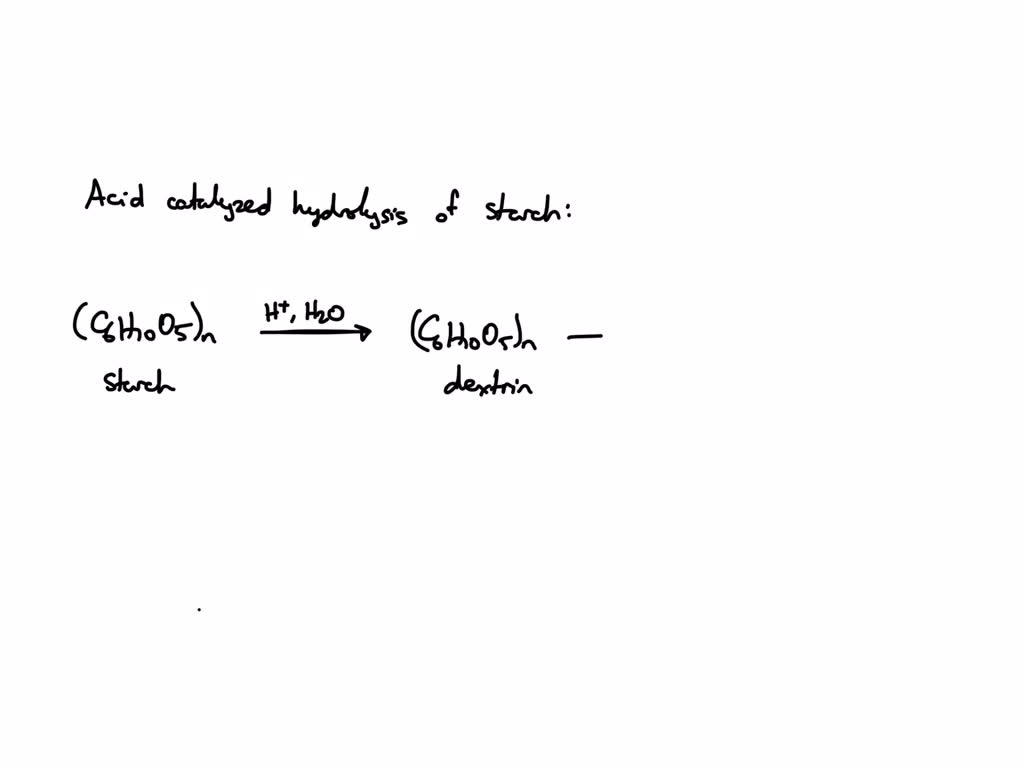 Acid catalyzed hydrolysis of starch:
(C₆H₁₀O₅)n H⁺, H₂O → (C₆H₁₀O₅)n —
starch dextrin